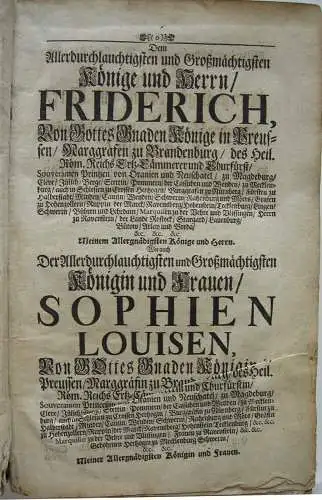 Dem
Allerdurchlauchtigsten und Großmächtigsten
Könige und Herrn/
FRIDERICH,
Von Gottes Gnaden Könige in Preus-
sen/ Marggrafen zu Brandenburg/ des Heil.
Röm. Reichs Ertz-Cämmerer und Churfürst/
Souverainen Printzen von Oranien und Neuschatel/ zu Magdeburg/
Cleve/ Jülich/ Berge/ Stettin/ Pommern/ der Cassuben und Wenden/ zu Mecklen-
burg/ auch in Schlesien zu Crossen Hertzoge/ Burggrafen zu Nürnberg/ Fürsten zu
Halberstadt/ Minden/ Camin/ Wenden/ Schwerin/ Ratzeburg und Mörs/ Grafen
zu Hohenzollern/ Ruppin/ der Marck/ Ravensberg/ Hohenstein/ Tecklenburg/ Lingen/
Schwerin/ Bühren und Lehrdam/ Marquisen zu der Vehre und Vlissingen/ Herrn
zu Ravenstein/ der Lande Rostock/ Stargard/ Lauenburg/
Bütow/ Arlay und Breda/
&c. &c. &c.
Meinem Allergnädigsten Könige und Herrn.
Wie auch
Der Allerdurchlauchtigsten und Großmächtigsten
Königin und Frauen/
SOPHIEN
LOUISEN,
Von GOttes Gnaden Königin
Preussen/ Marggräfin zu des Heil.
Röm. Reichs und Churfürstin/
Souverainen Princessin Oranien und Neuschatel/ zu Magdeburg/
Cleve/ Jülich/ Stettin/ Pommern/ der Cassuben und Wenden/ zu Mecklen-
burg/ auch in Schlesien zu Crossen Hertzogin/ Burggräfin zu Nürnberg/ Fürstin zu
Halberstadt/ Minden/ Camin/ Wenden/ Schwerin/ Ratzeburg und Mörs/ Gräfin
zu Hohenzollern/ Ruppin/ der Marck/ Ravensberg/ Hohenstein/ Tecklenburg/ &c. &c.
Marquisin zu der Vehre und Vlissingen/ Frauen zu Ravenstein/ &c. &c.
Gebohrnen Hertzogin zu Mecklenburg Schwerin/
&c. &c. &c.
Meiner Allergnädigsten Königin und Frauen.